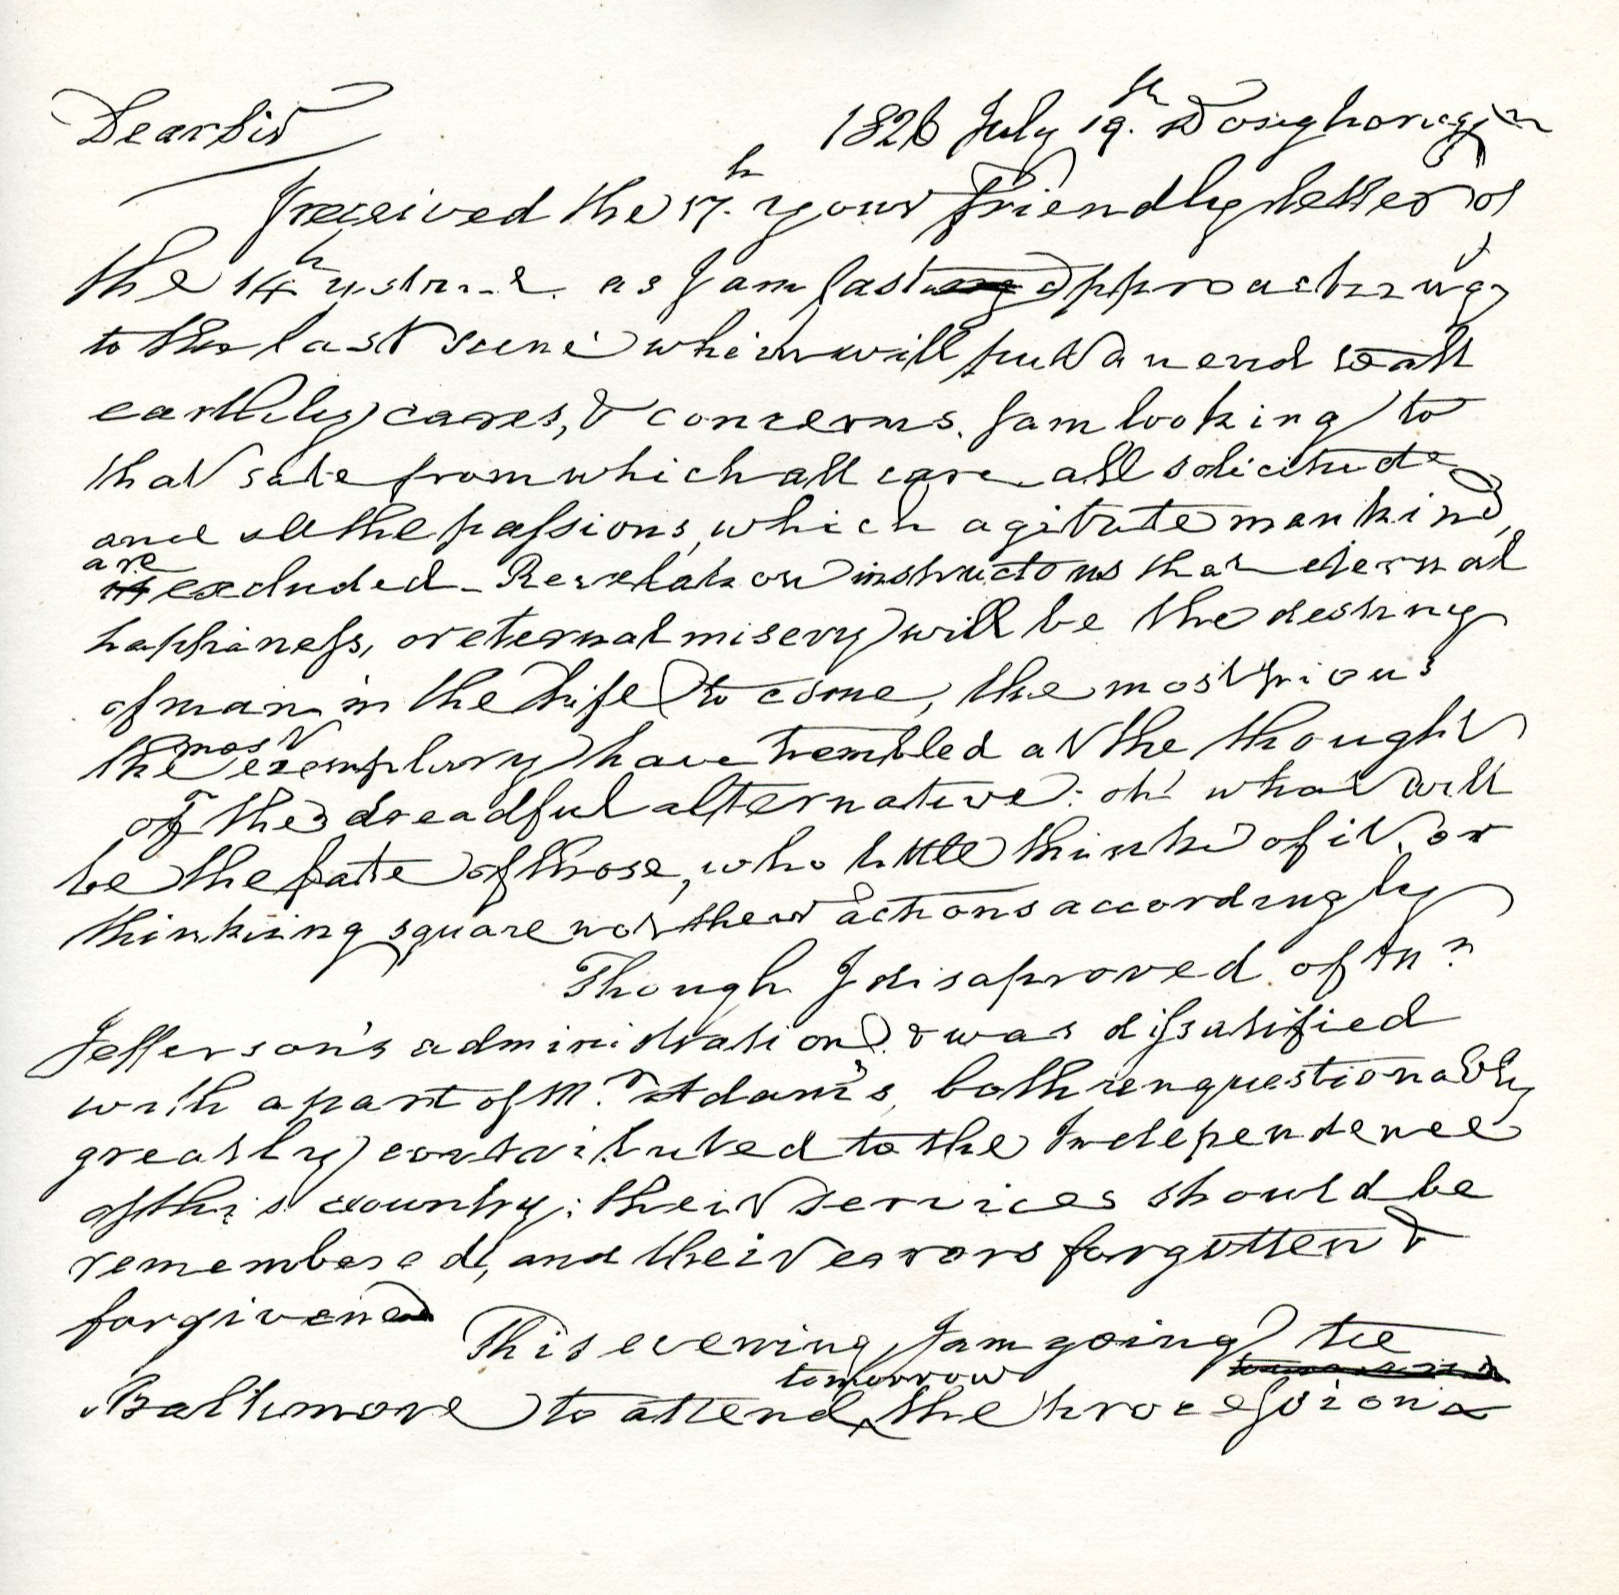 Dear Sir 1826 July 19th Doughoragen
I received the 17th your friendly letter of
the 14th instant. as I am fast approaching
to the last scene which will put an end to all
earthly cares, & concerns. I am looking to
that state from which all care all solicitude
and all the passions, which agitate mankind,
are excluded – Revelation instructs us that eternal
happiness, or eternal misery will be the destiny
of man in the life to come, the most pious
the most exemplary have trembled at the thought
of the dreadful alternative: oh! what will
be the fate of those, who little think of it, or
thinking square not their actions accordingly
Though I disaproved of Mr
Jefferson's administration & was dissatisfied
with a part of Mr Adam's, both unquestionably
greatly contributed to the Independence
of this country: their services should be
remembered, and their errors forgotten &
forgiven
This evening I am going to
Baltimore to attend tomorrow the procession &